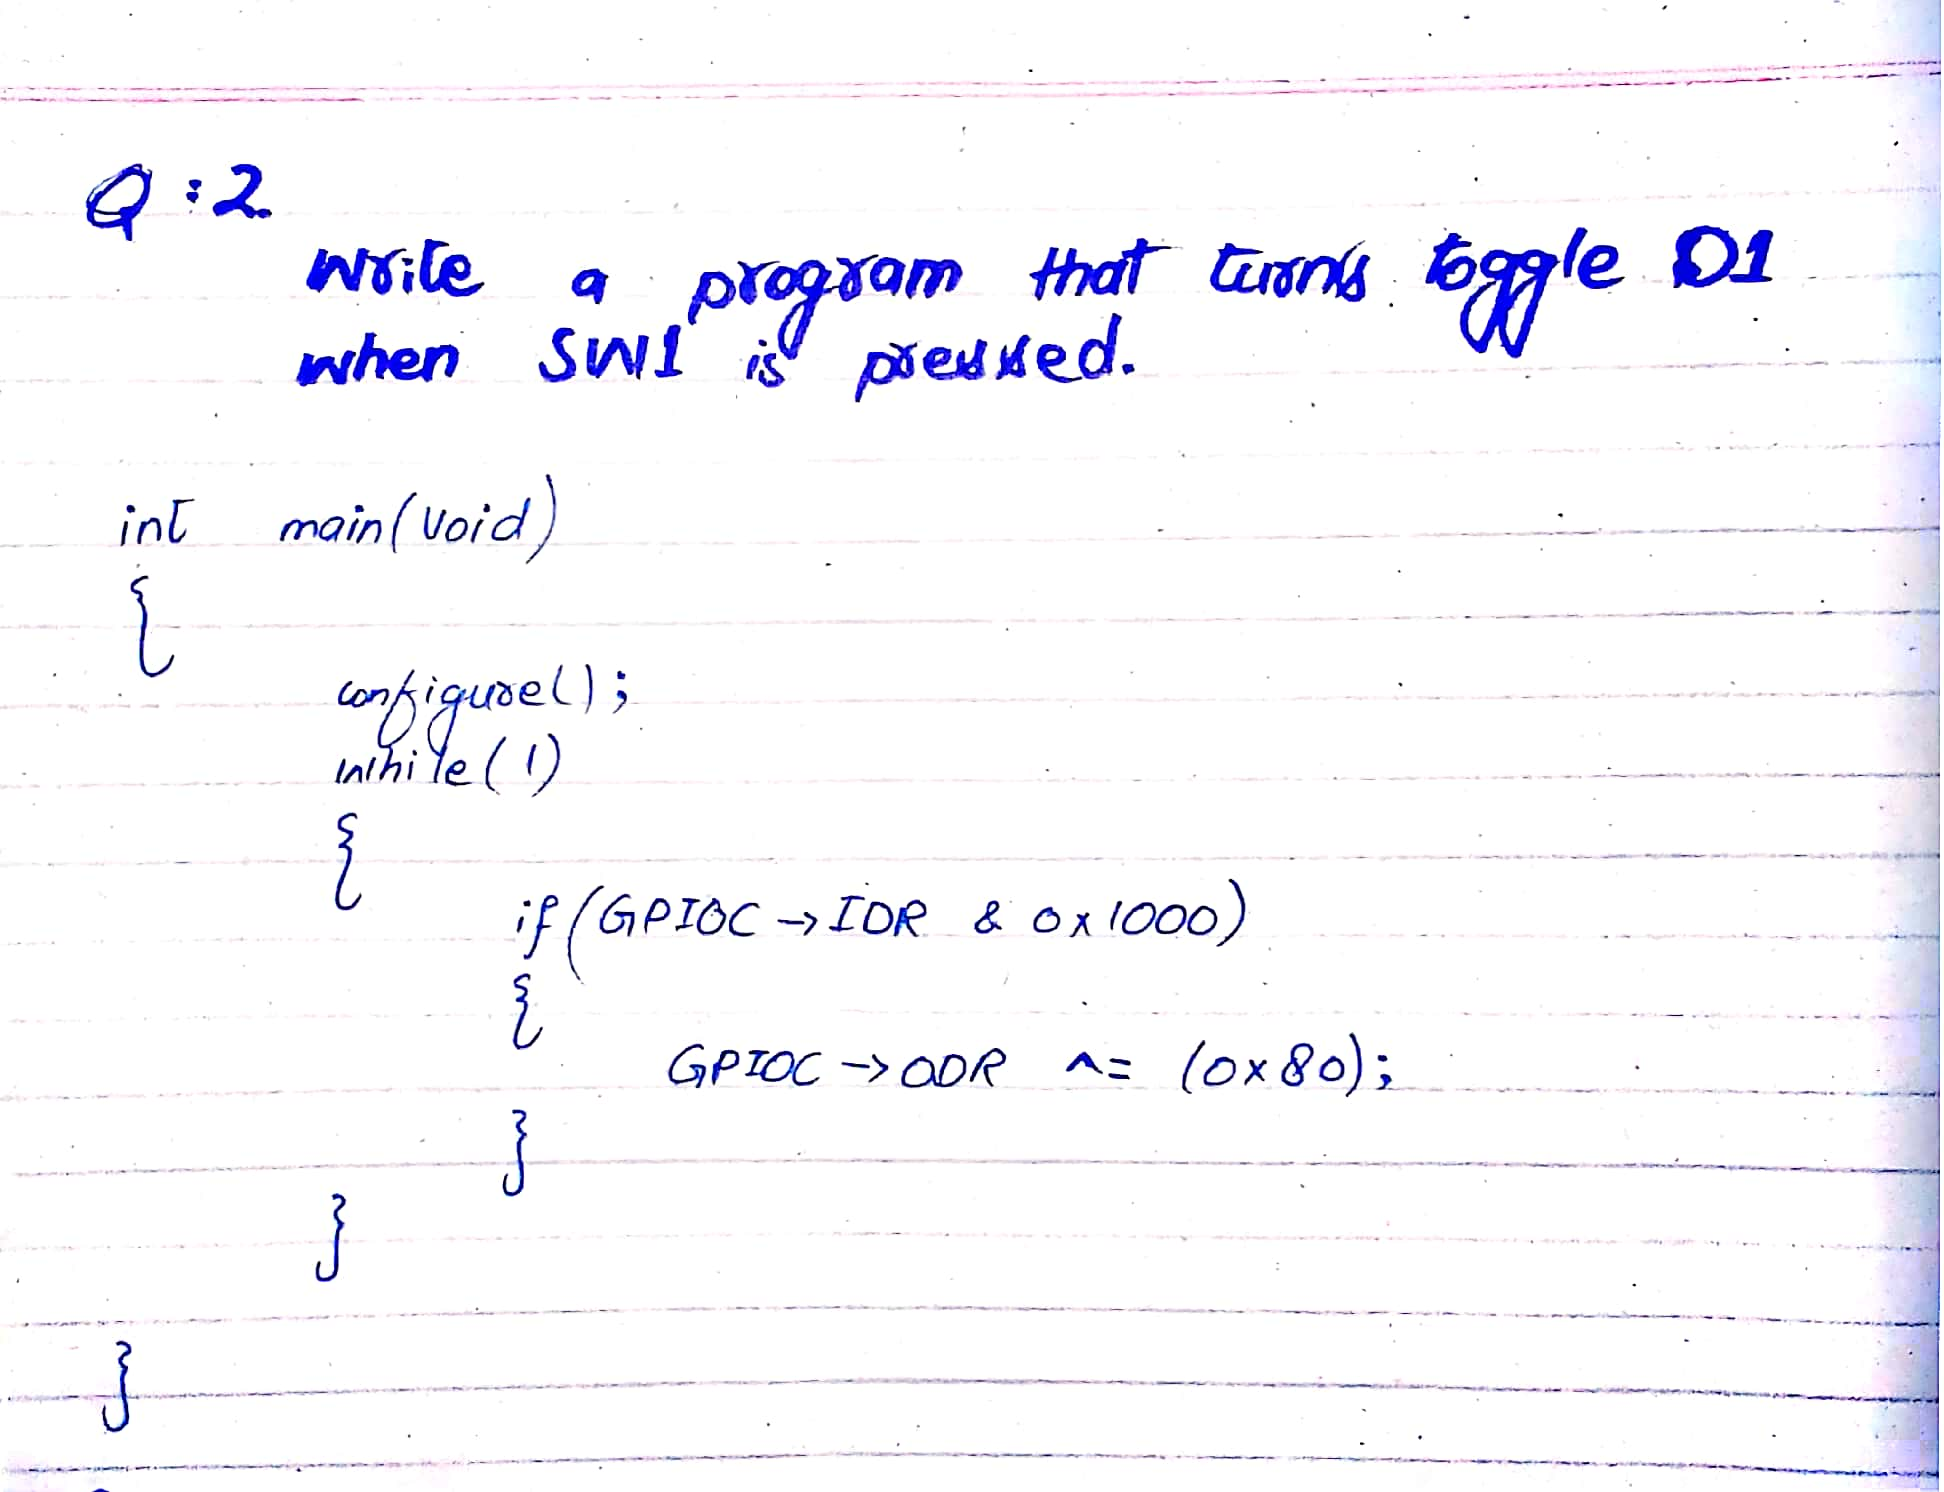 Q:2
Write a program that turns toggle D1
when SW1 is pressed.
int main(void)
{
configure();
while(1)
{
if(GPIOC→IDR & 0x1000)
{
GPIOC→ODR ^= (0x80);
}
}
}